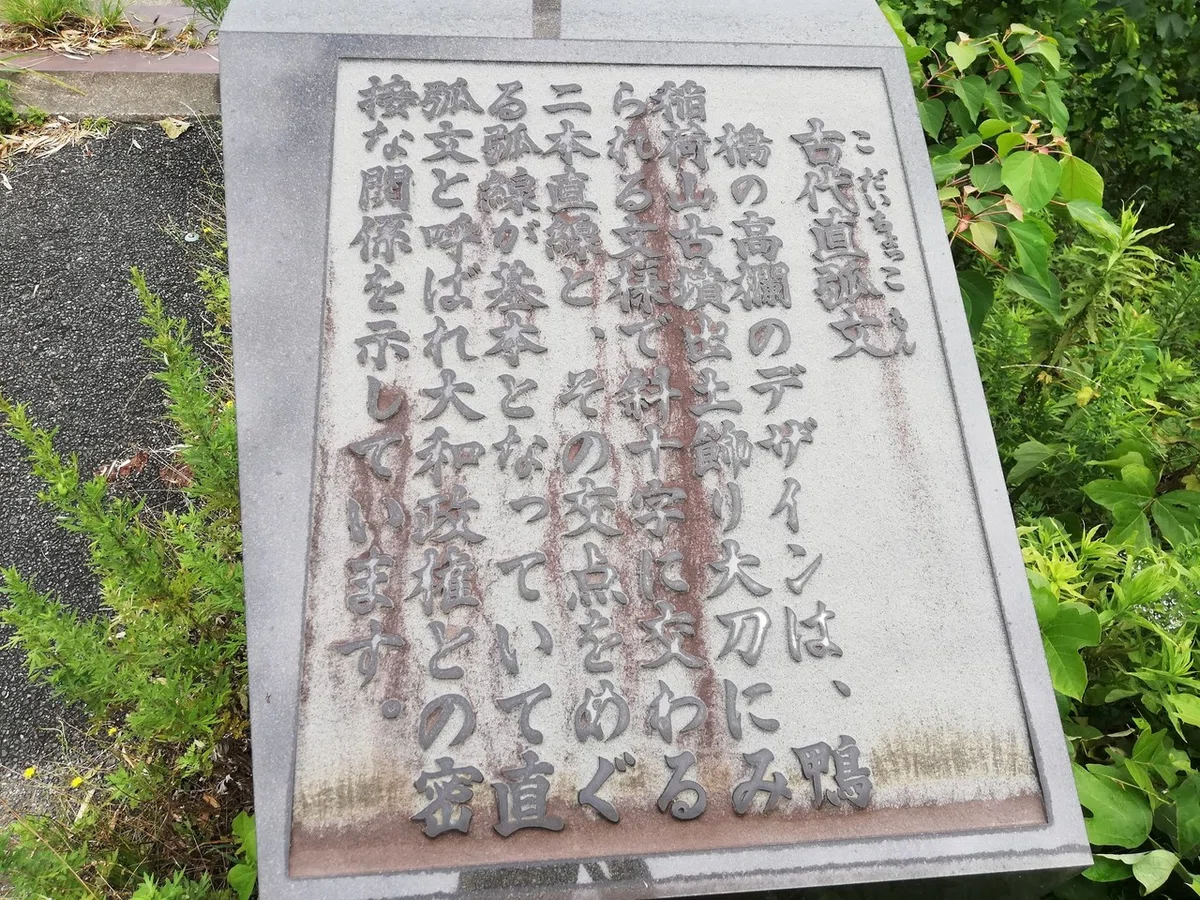 こだいちょっこもん
古代直弧文
橋の高欄のデザインは、鴨
稲荷山古墳出土飾り大刀にみ
られる文様で斜十字に交わる
二本直線と、その交点をめぐ
る弧線が基本となっていて直
弧文と呼ばれ大和政権との密
接な関係を示しています。